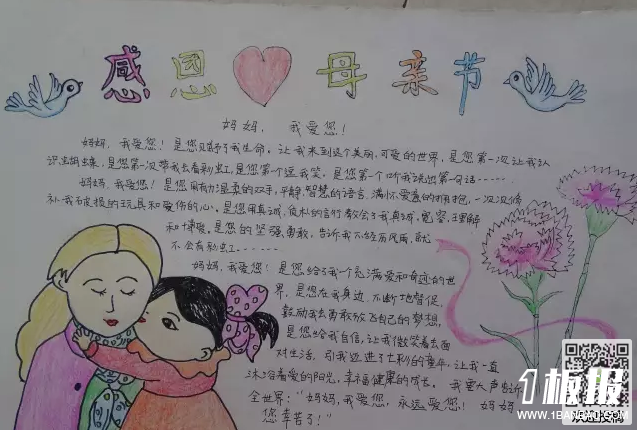 感恩 母亲节
妈妈，我爱您！
妈妈，我爱您！是您赋予了我生命，让我来到这个美丽，可爱的世界，是您第一次让我认
识蝴蝶，是您第一次带我去看彩虹，是您第一个逗我笑，是您第一个听我说出第一句话……
妈妈，我爱您！是您用有力温柔的双手，平静，智慧的语言，满怀爱意的拥抱，一次次修
补我破损的玩具和受伤的心。是您用真诚，质朴的言行教会了我真诚，宽容，理解
和博爱，是您的坚强勇敢，告诉我不经历风雨，就
不会有彩虹……
妈妈，我爱您！是您给了我一个充满爱和奇迹的世
界，是您在我身边，不断地督促，
鼓励我去勇敢放飞自己的梦想，
是您给我自信，让我微笑着去面
对生活，引我迈进了七彩的童年，让我一直
沐浴着爱的阳光，幸福健康的成长。我要大声告诉
全世界：“妈妈，我爱您，永远爱您！妈妈
您辛苦了！”
板报
WWW.1BANBAO.COM
欢迎投稿